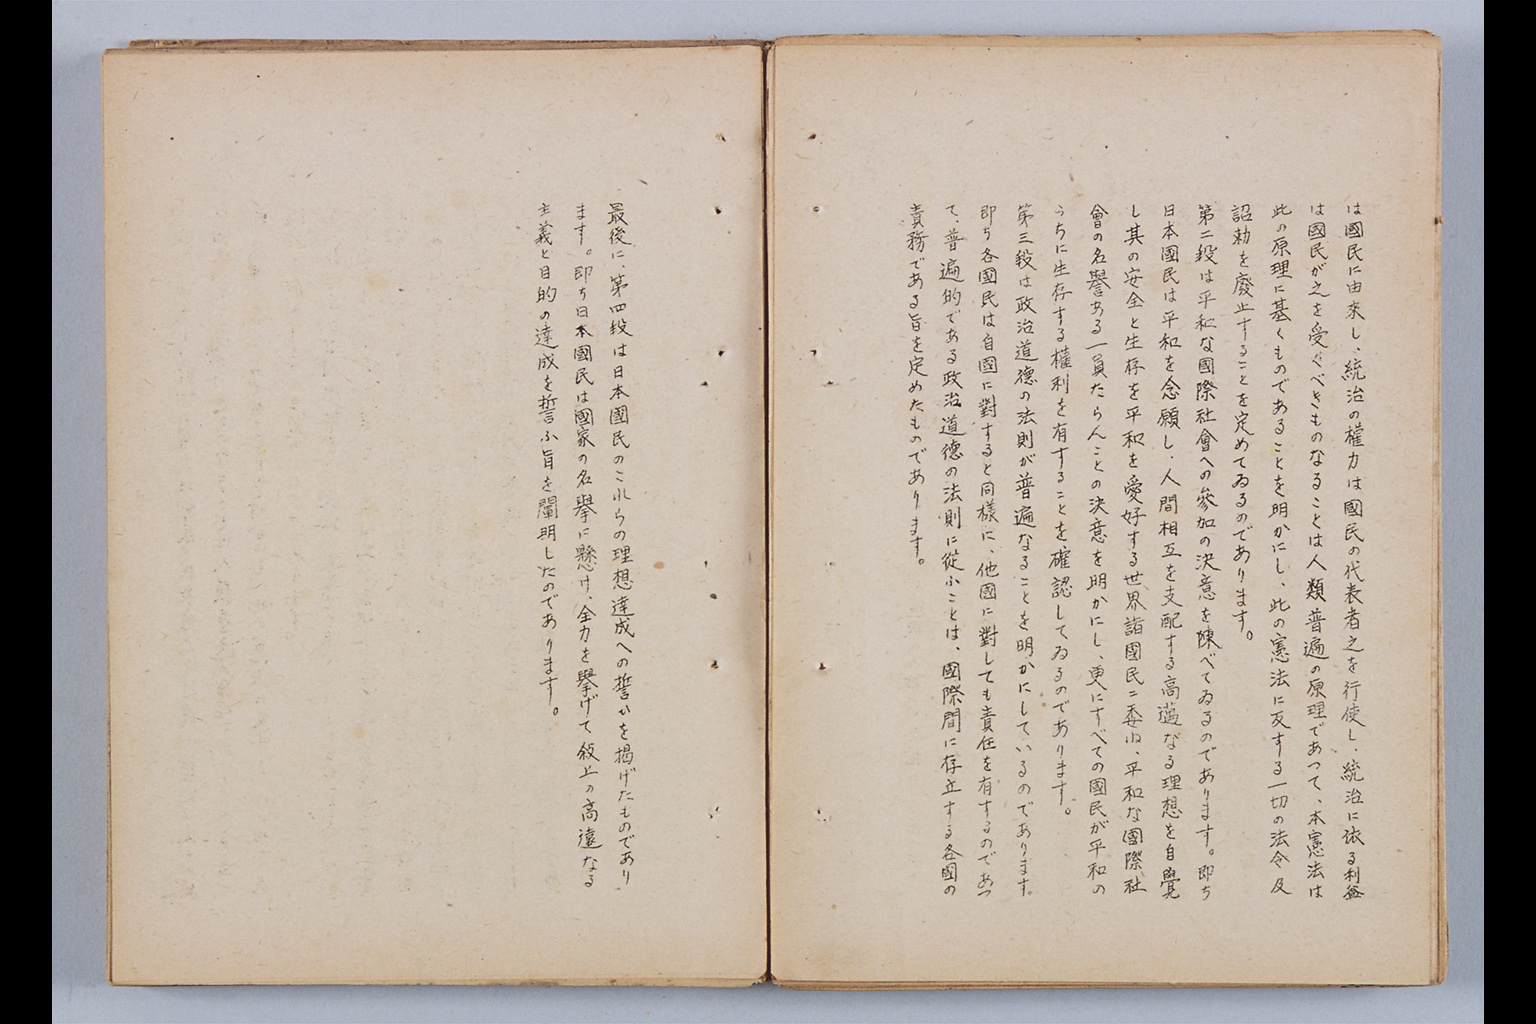 は國民に由来し、統治の權力は國民の代表者之を行使し、統治に依る利益
は國民が之を受くべきものなることは人類普遍の原理であつて、本憲法は
此の原理に基くものであることを明かにし、此の憲法に反する一切の法令及
詔勅を廢止することを定めてゐるのであります。
第二段は平和な國際社會への參加の決意を陳べてゐるのであります。即ち
日本國民は平和を念願し、人間相互を支配する高邁なる理想を自覺
し其の安全と生存を平和を愛好する世界諸國民ニ委ね、平和な國際社
會の名譽ある一員たらんことの決意を明かにし、更にすべての國民が平和の
うちに生存する權利を有することを確認してゐるのであります。
第三段は政治道德の法則が普遍なることを明かにしているのであります。
即ち各國民は自國に對すると同様に、他國に對しても責任を有するのであつ
て、普遍的である政治道德の法則に從ふことは、國際間に存立する各國の
責務である旨を定めたものであります。
最後に、第四段は日本國民のこれらの理想達成への誓ひを掲げたものであり
ます。即ち日本國民は國家の名擧に懸け、全力を擧げて敍上の高遠なる
主義と目的の達成を誓ふ旨を闡明したのであります。